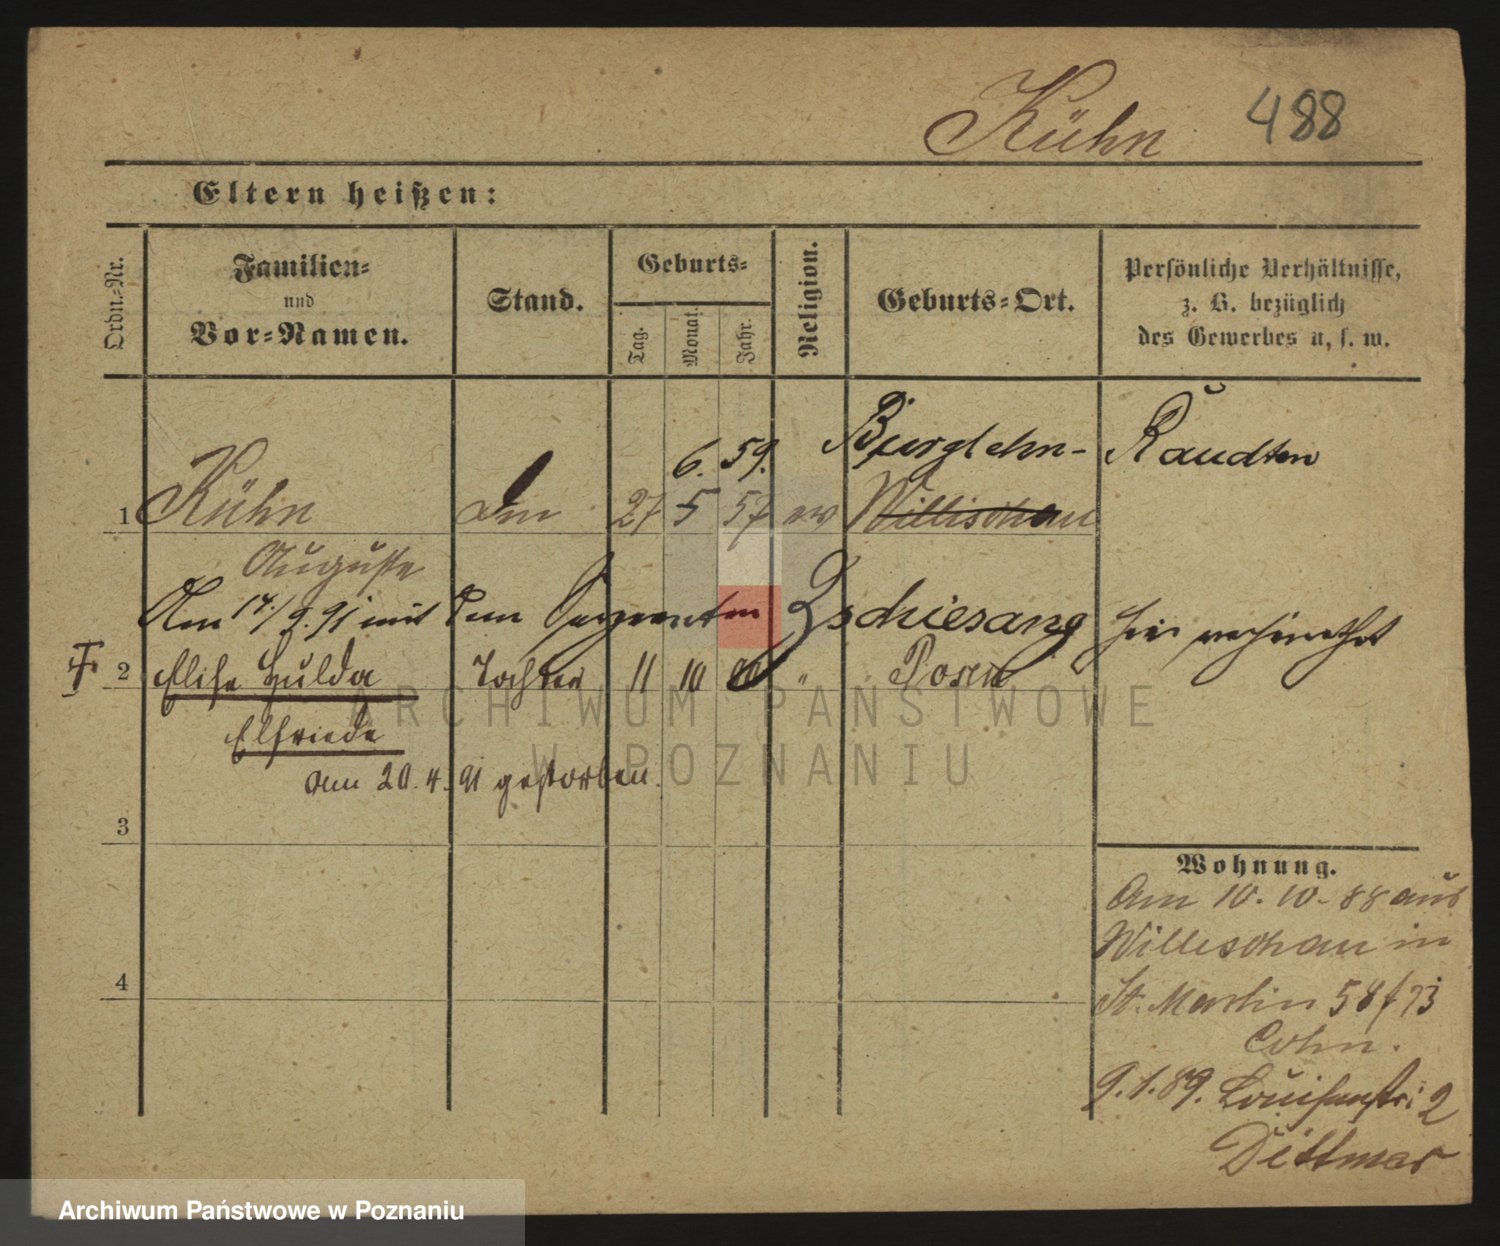 Kühn 488
Eltern heißen:
Ordn.-Nr.
Familien-
und
Vor-Namen.
Stand.
Geburts-
Tag.
Monat.
Jahr.
Religion.
Geburts-Ort.
Persönliche Verhältnisse,
z. B. bezüglich
des Gewerbes u. s. w.
6. 59. Burglehn- Raudten
1 Kühn 27 5 57 ev Willischau
Auguste
Am 14/9. 91 mit dem Sergeanten Zschiesang hier verheirathet
2 Elise Hulda Tochter 11 10 90 " Posen
Elfriede
am 20. 4. 91 gestorben.
3
4
Wohnung.
Am 10. 10. 88 aus
Willischau in
St. Martin 58/73
Cohn.
9. 1. 89. Louisenstr: 2
Dittmar
ARCHIWUM PAŃSTWOWE
W POZNANIU
Archiwum Państwowe w Poznaniu